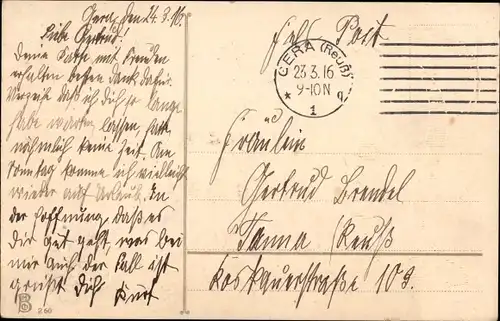 Gera, den 24.3.16.
Liebe Gertrud!
Deine Karte mit Freuden
erhalten besten Dank dafür.
Verzeihe daß ich dich so lange
habe warten lassen, hatte
nähmlich keine Zeit. Am
Sonntag komme ich vielleicht
wieder auf Urlaub. In
der Hoffnung, daß es
Dir gut geht, was bei
mir auch der Fall ist
grüßt Dich Kurt
Feld Post
GERA (Reuß)
23.3.16
9-10 N
* 1 q
Fräulein
Gertrud Brendel
Tanna (Reuß)
Koskauerstraße 103.
B 260